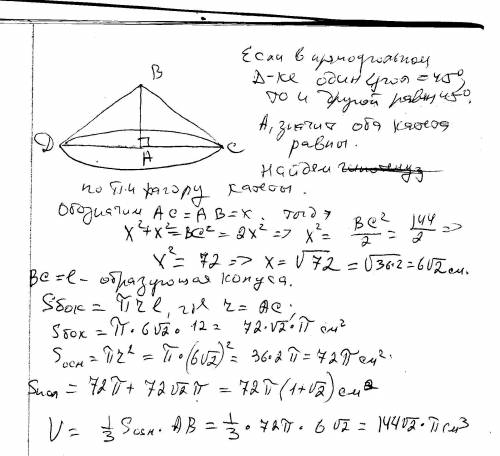 B
D
A
C
Если в прямоугольном
Δ-ке один угол = 45°,
то и другой равен 45°.
А, значит оба катета
равны.
Найдем
по Пифагору катеты.
Обозначим AC = AB = x. тогда
x² + x² = BC² = 2x² => x² = BC²/2 = 144/2 =>
x² = 72 => x = √72 = √36·2 = 6√2 см.
BC = l - образующая конуса.
Sбок = πrl, где r = AC.
Sбок = π·6√2·12 = 72·√2·π см²
Sосн = πr² = π·(6√2)² = 36·2π = 72π см².
Sпол = 72π + 72√2π = 72π(1+√2) см²
V = 1/3 Sосн·AB = 1/3·72π·6√2 = 144√2·π см³